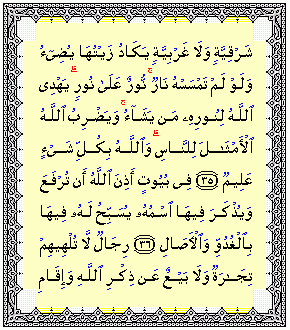 شَرْقِيَّةٍ وَلَا غَرْبِيَّةٍ يَكَادُ زَيْتُهَا يُضِىٓءُ
وَلَوْ لَمْ تَمْسَسْهُ نَارٌ ۚ نُّورٌ عَلَىٰ نُورٍ ۗ يَهْدِى
ٱللَّهُ لِنُورِهِۦ مَن يَشَآءُ ۚ وَيَضْرِبُ ٱللَّهُ
ٱلْأَمْثَـٰلَ لِلنَّاسِ ۗ وَٱللَّهُ بِكُلِّ شَىْءٍ
عَلِيمٌ ﴿٣٥﴾ فِى بُيُوتٍ أَذِنَ ٱللَّهُ أَن تُرْفَعَ
وَيُذْكَرَ فِيهَا ٱسْمُهُۥ يُسَبِّحُ لَهُۥ فِيهَا
بِٱلْغُدُوِّ وَٱلْـَٔاصَالِ ﴿٣٦﴾ رِجَالٌ لَّا تُلْهِيهِمْ
تِجَـٰرَةٌ وَلَا بَيْعٌ عَن ذِكْرِ ٱللَّهِ وَإِقَامِ